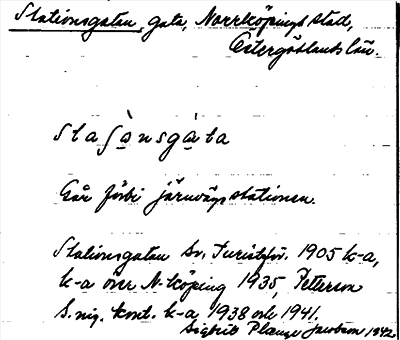 Stationsgatan, gata, Norrköpings stad,
Östergötlands län.
Staʃonsgata
Går förbi järnvägsstationen.
Stationsgatan Sv. Turistför. 1905 k-a,
k-a över N-köping 1935, Peterson
S. nig. kont. k-a 1938 och 1941.
Sigbrit Plange Jacobson 1942